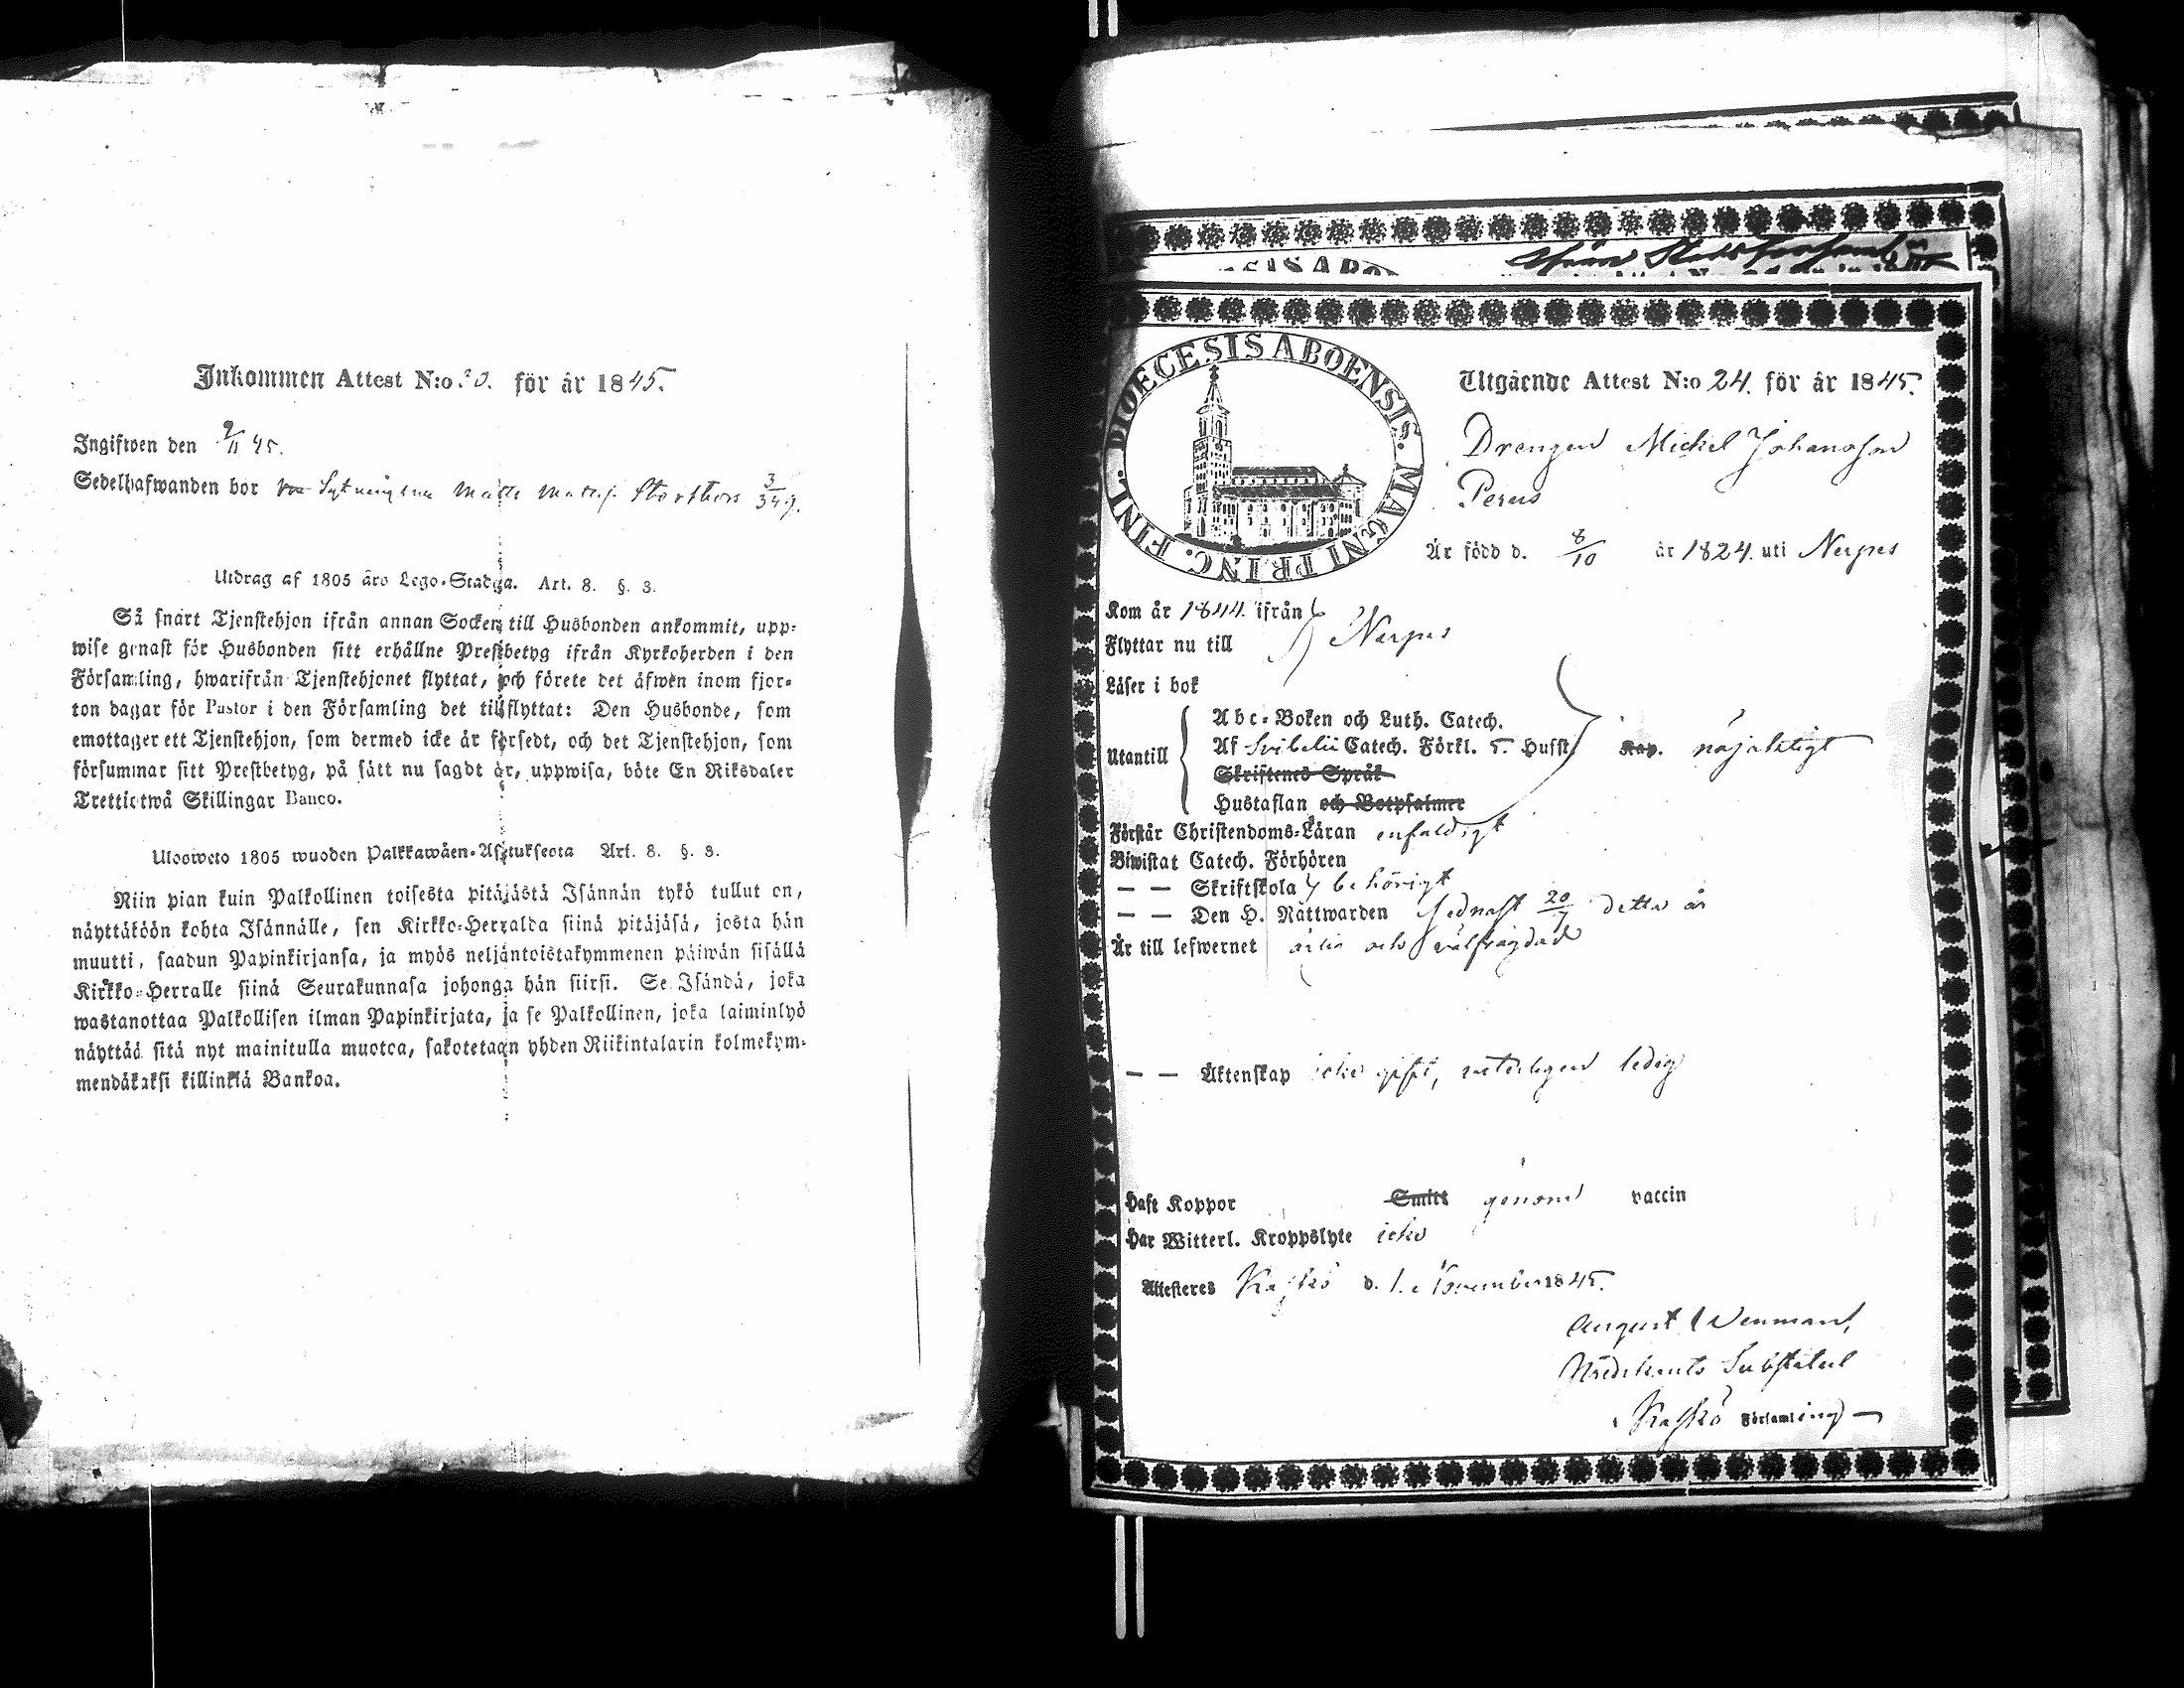 Inkommen Attest N:o 30. för år 1845.
Ingifwen den 9/11 45.
Sedelhafwanden bor Matts Storthors 3/349.
Utdrag af 1805 års Lego-Stadga. Art. 8. §. 3.
Så snart Tjenstehjon ifrån annan Socken till Husbonden ankommit, upp-
wise genast för Husbonden sitt erhållne Prestbetyg ifrån Kyrkoherden i den
Församling, hwarifrån Tjenstehjonet flyttat, och förete det äfwen inom fjor-
ton dagar för Pastor i den Församling det tillflyttat: Den Husbonde, som
emottager ett Tjenstehjon, som dermed icke är försedt, och det Tjenstehjon, som
försummar sitt Prestbetyg, på sätt nu sagdt är, uppwisa, böte En Riksdaler
Trettiotwå Skillingar Banco.
Ulosweto 1805 wuoden Palkkawäen-Asetuksesta Art. 8. §. 3.
Niin pian kuin Palkollinen toisesta pitäjästä Isännän tykö tullut on,
näyttäköön kohta Isännälle, sen Kirkko-Herralda siinä pitäjäsä, josta hän
muutti, saadun Papinkirjansa, ja myös neljäntoistakymmenen päiwän sisällä
Kirkko-Herralle siinä Seurakunnasa johonga hän siirsi. Se Isändä, joka
wastanottaa Palkollisen ilman Papinkirjata, ja se Palkollinen, joka laiminlyö
näyttää sitä nyt mainitulla muotoa, sakotetaan yhden Riikintalarin kolmekym-
mendäkaksi killinkiä Bankoa.
DIOECESIS ABOENSIS. MAGNI PRINC. FINL.
Utgående Attest N:o 24. för år 1845.
Drengen Mickel Johansson
Perus
Är född d. 8/10 år 1824. uti Nerpes
Kom år 1844. ifrån
Flyttar nu till Nerpes
Läser i bok
Utantill
Abc-Boken och Luth. Catech.
Af Svibelii Catech. Förkl. 5. Hufst. Kap. nöjaktigt
Skriftenes Språk
Hustaflan och Botpsalmer
Förstår Christendoms-Läran enfaldigt
Biwistat Catech. Förhören
— — Skriftskola behörigt
— — Den H. Nattwarden sednast 20/7 detta år
Är till lefwernet ärlig och välfrägdad
— — Äktenskap icke gift, veterligen ledig
Haft Koppor Smitt genom vaccin
Har Witterl. Kroppslyte icke
Attesteras Kaskö d. 1. November 1845.
August Wenman,
Prädikants Substitut
i Kaskö Församling